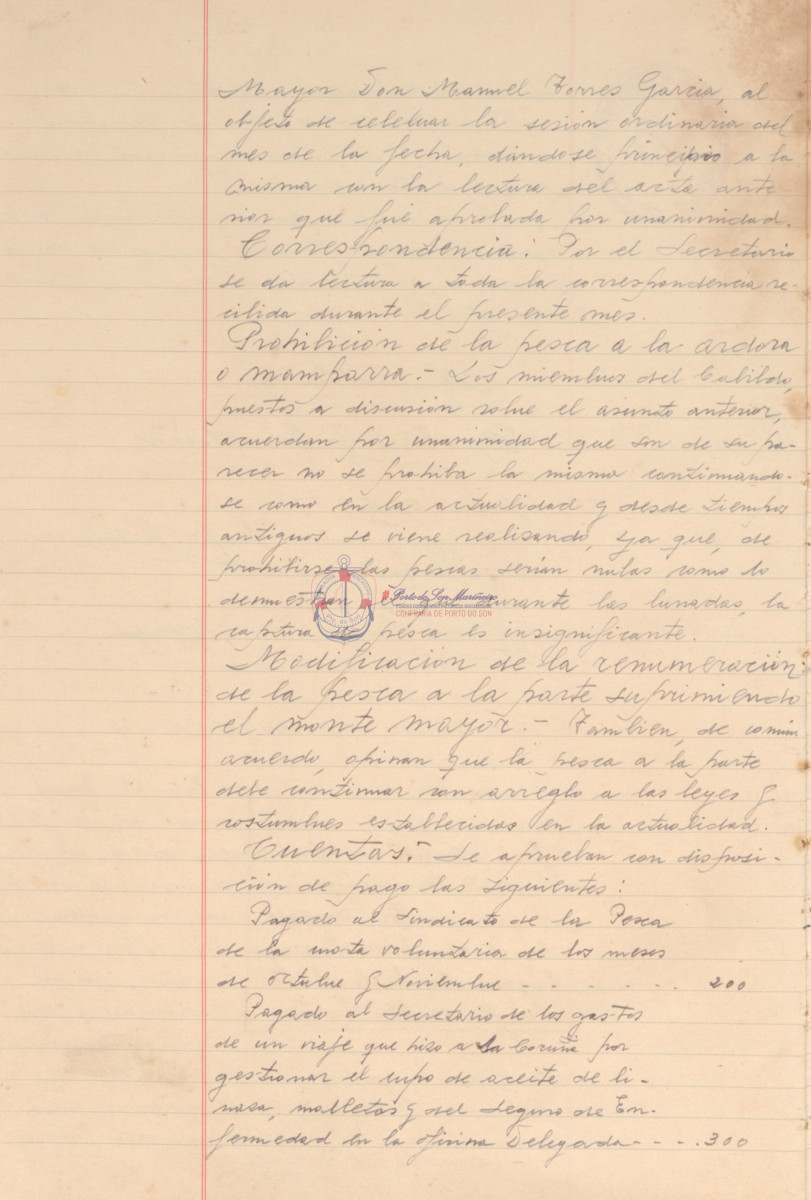 Mayor Don Manuel Torres García, al
objeto de celebrar la sesión ordinaria del
mes de la fecha, dándose principio a la
misma con la lectura del acta ante-
rior que fué aprobada por unanimidad.
Correspondencia: Por el Secretario
se da lectura a toda la correspondencia re-
cibida durante el presente mes.
Prohibición de la pesca a la ardora
o mamparra.- Los miembros del Cabildo,
puestos a discusión sobre el asunto anterior,
acuerdan por unanimidad que son de su pa-
recer no se prohiba la misma continuando-
se como en la actualidad y desde tiempos
antiguos se viene realisando, ya que, de
prohibirse las pescas serían nulas como lo
demuestran durante las lunadas, la
captura de pesca es insignificante.
Modificación de la renumeración
de la pesca a la parte suprimiendo
el monte mayor.- Tambien, de común
acuerdo, opinan que la pesca a la parte
debe continuar con arreglo a las leyes y
costumbres establecidas en la actualidad.
Cuentas.- Se aprueban con disposi-
ción de pago las siguientes:
Pagado al Sindicato de la Pesca
de la cuota voluntaria de los meses
de octubre y Noviembre - - - - - - 200
Pagado al Secretario de los gastos
de un viaje que hizo a La Coruña por
gestionar el cupo de aceite de li-
nasa, malletas y del Seguro de En-
fermedad en la oficina Delegada - - - . 300
Porto do Son Mariñeiro
CONFRARÍA DE PORTO DO SON